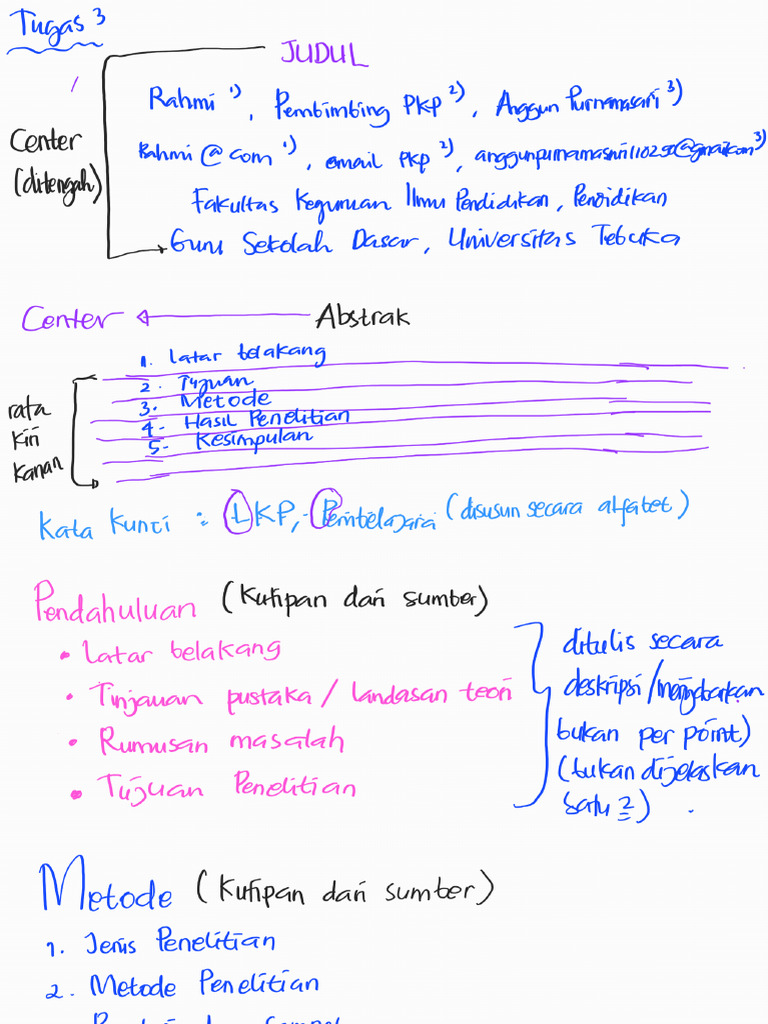 Tugas 3
JUDUL
Rahmi 1), Pembimbing PKP 2), Anggun Purnamasari 3)
Center
(ditengah)
Rahmi@com 1), email PKP 2), anggunpurnamasari110250@gmail.com 3)
Fakultas Keguruan Ilmu Pendidikan, Pendidikan
Guru Sekolah Dasar, Universitas Tebuka
Center
Abstrak
1. Latar belakang
2. Tujuan
3. Metode
4. Hasil Penelitian
5. Kesimpulan
rata
kiri
kanan
Kata Kunci : LKP, Pembelajara (disusun secara alfabet)
Pendahuluan (Kutipan dari sumber)
• Latar belakang
• Tinjauan pustaka / landasan teori
• Rumusan masalah
• Tujuan Penelitian
ditulis secara
deskripsi/menjabarkan
bukan per point)
(bukan dijelaskan
satu 2)
Metode (Kutipan dari sumber)
1. Jenis Penelitian
2. Metode Penelitian